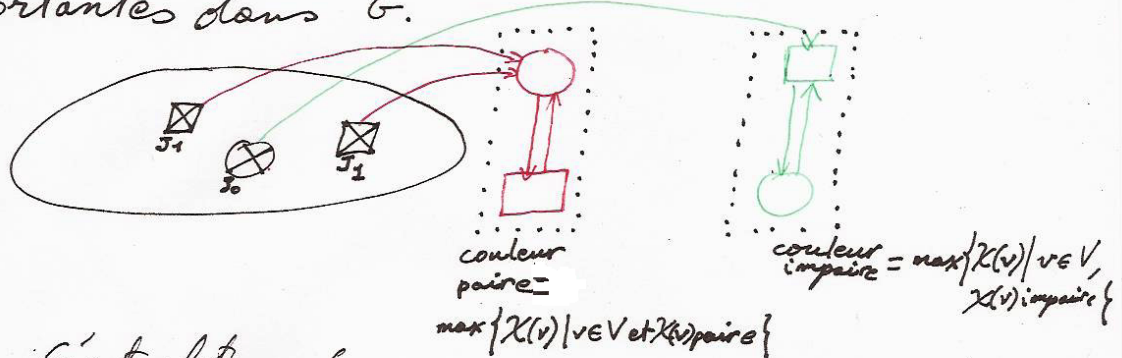 ortantes dans G.
J1
J0
J1
couleur
paire=
max{χ(v)|v∈V et χ(v)paire}
couleur
impaire = max{χ(v)|v∈V,
χ(v)impaire}